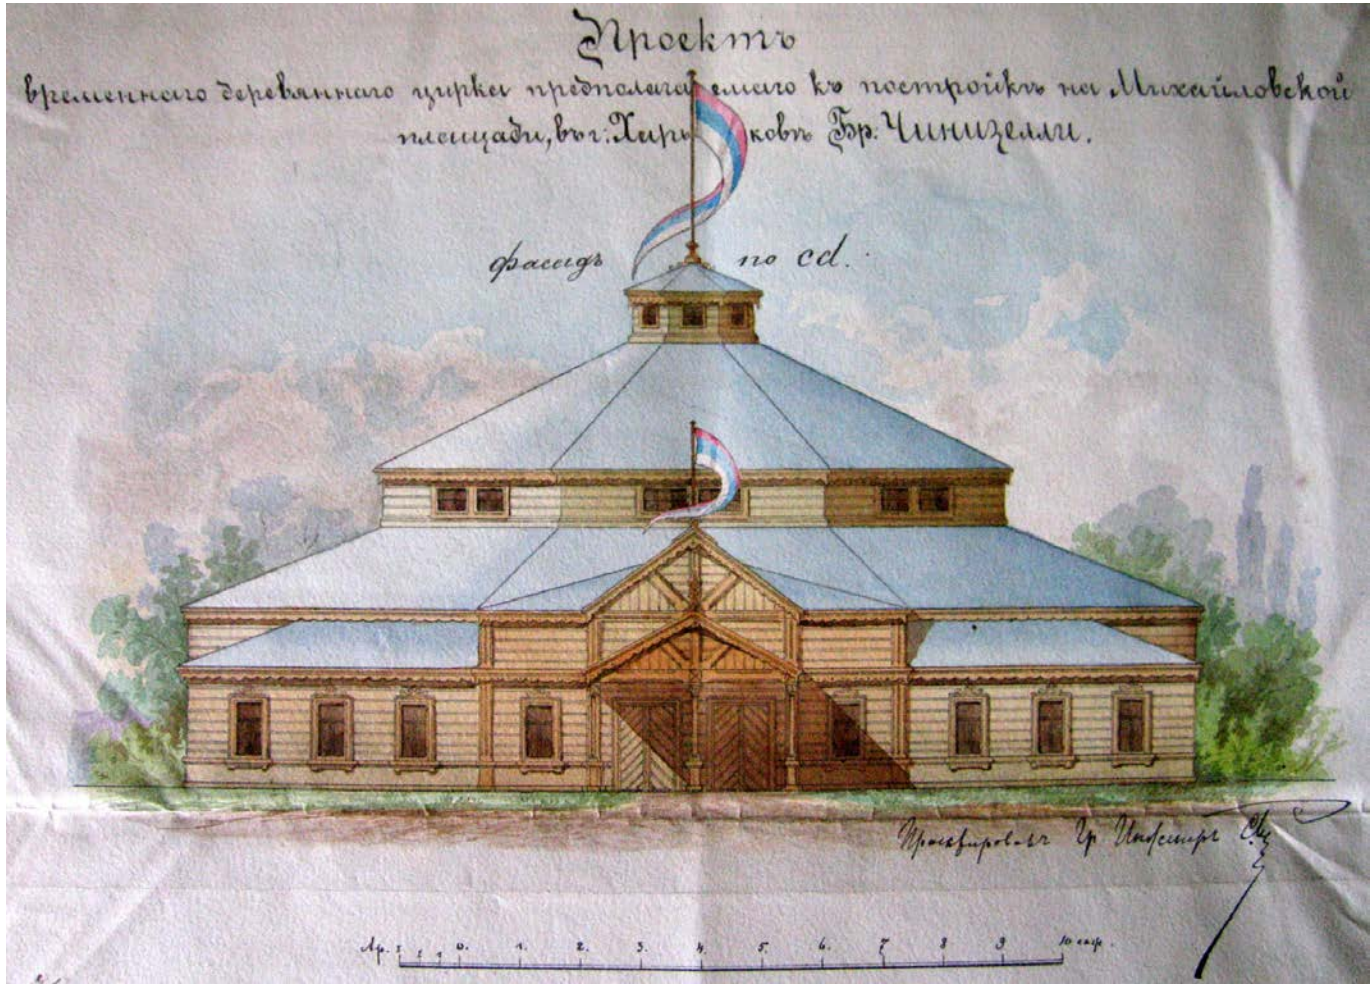 Проектъ
временнаго деревяннаго цирка предполагаемаго къ постройкѣ на Михайловской
площади, въ г. Харьковѣ Бр. Чинизелли.
фасадъ по cd.
Проектировалъ Гр. Инженеръ
Ар. 3 2 1 0. 1. 2. 3. 4. 5. 6. 7 8 9 10 саж.